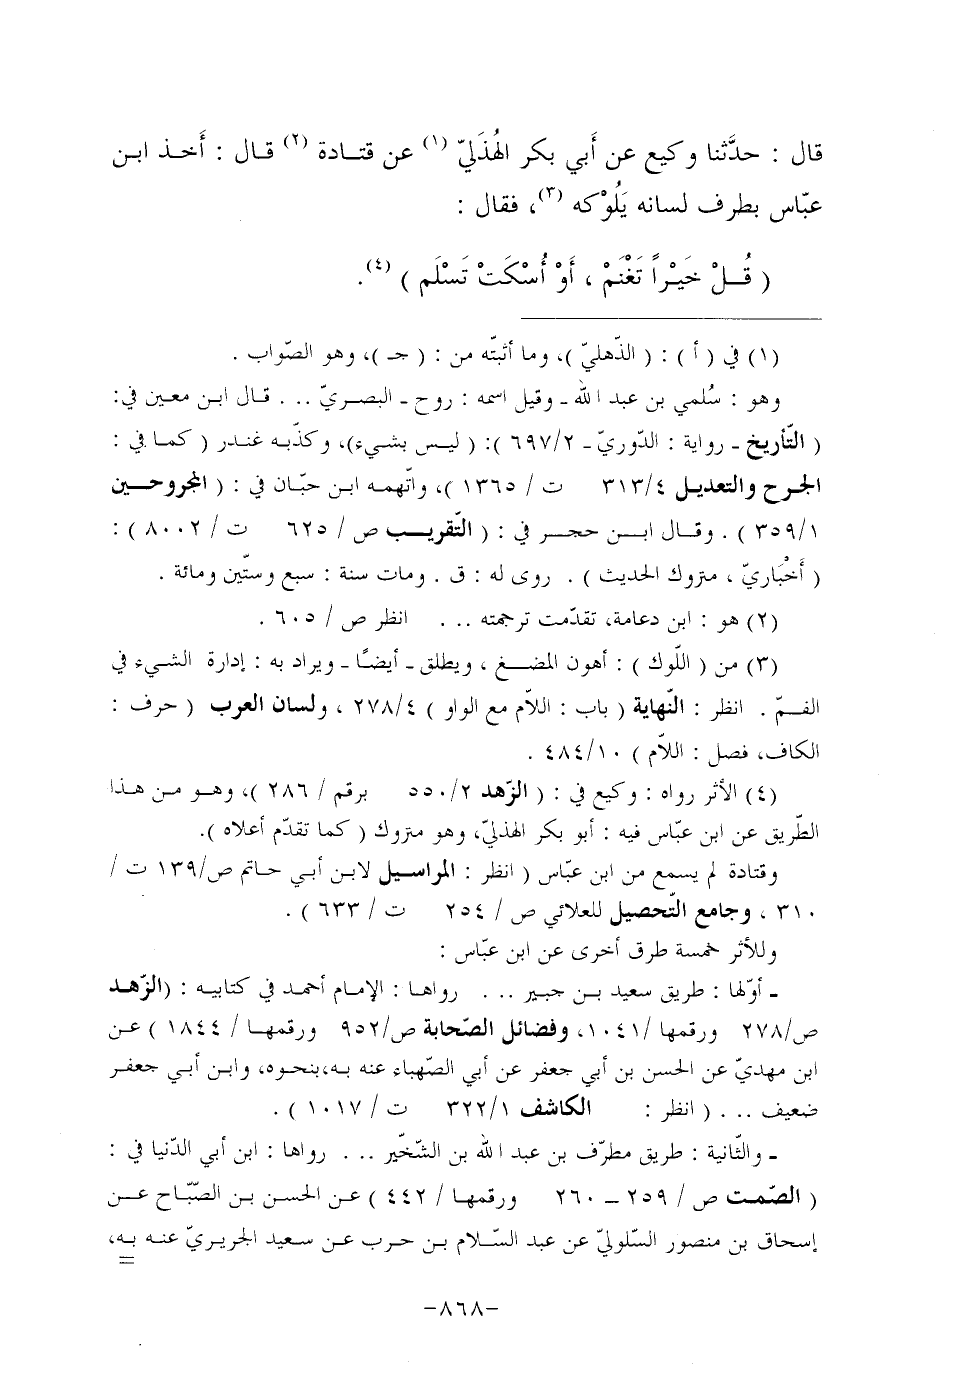 قال : حدَّثنا وكيع عن أَبي بكر الهُذَليّ (١) عن قتادة (٢) قال : أَخذ ابن
عبّاس بطرف لسانه يَلُوْكه (٣)، فقال :
( قُلْ خَيْراً تَغْنَمْ ، أَوْ أُسْكَتْ تَسْلَم ) (٤).
(١) في ( أ ) : ( الذّهليّ )، وما أثبتّه من : ( جـ )، وهو الصّواب .
وهو : سُلمي بن عبد الله ـ وقيل اسمه : روح ـ البصريّ .. . قال ابن معين في:
( التّأريخ ـ رواية : الدّوريّ ـ ٦٩٧/٢ ): ( ليس بشيء)، وكذّبه غندر ( كما في :
الجرح والتعديل ٣١٣/٤ ت / ١٣٦٥ )، واتّهمه ابن حبّان في : ( المجروحين
٣٥٩/١ ) . وقال ابن حجر في : ( التّقريب ص / ٦٢٥ ت / ٨٠٠٢ ) :
( أَخْباريّ ، متروك الحديث ) . روى له : ق . ومات سنة : سبع وستّين ومائة .
(٢) هو : ابن دعامة، تقدّمت ترجمته .. . انظر ص / ٦٠٥ .
(٣) من ( اللّوك ) : أهون المضغ ، ويطلق ـ أيضًا ـ ويراد به : إدارة الشيء في
الفمّ . انظر : النّهاية ( باب : اللاّم مع الواو ) ٢٧٨/٤ ، ولسان العرب ( حرف :
الكاف، فصل : اللاّم ) ٤٨٤/١٠ .
(٤) الأثر رواه : وكيع في : ( الزّهد ٥٥٠/٢ برقم / ٢٨٦ )، وهو من هذا
الطّريق عن ابن عبّاس فيه : أبو بكر الهذليّ، وهو متروك ( كما تقدّم أعلاه ).
وقتادة لم يسمع من ابن عبّاس ( انظر : المراسيل لابن أبي حاتم ص/١٣٩ ت /
٣١٠ ، وجامع التّحصيل للعلائي ص / ٢٥٤ ت / ٦٣٣ ) .
وللأثر خمسة طرق أخرى عن ابن عبّاس :
ـ أوّلها : طريق سعيد بن جبير .. . رواها : الإمام أحمد في كتابيه : (الزّهد
ص/٢٧٨ ورقمها /١٠٤١، وفضائل الصّحابة ص/٩٥٢ ورقمها / ١٨٤٤ ) عن
ابن مهديّ عن الحسن بن أبي جعفر عن أبي الصّهباء عنه به،بنحوه، وابن أبي جعفر
ضعيف .. . ( انظر : الكاشف ٣٢٢/١ ت / ١٠١٧ ) .
ـ والثّانية : طريق مطرّف بن عبد الله بن الشّخّير .. . رواها : ابن أبي الدّنيا في :
( الصّمت ص / ٢٥٩ – ٢٦٠ ورقمها / ٤٤٢ ) عن الحسن بن الصّبّاح عن
إسحاق بن منصور السّلوليّ عن عبد السّلام بن حرب عن سعيد الجريريّ عنه به،
=
-٨٦٨-